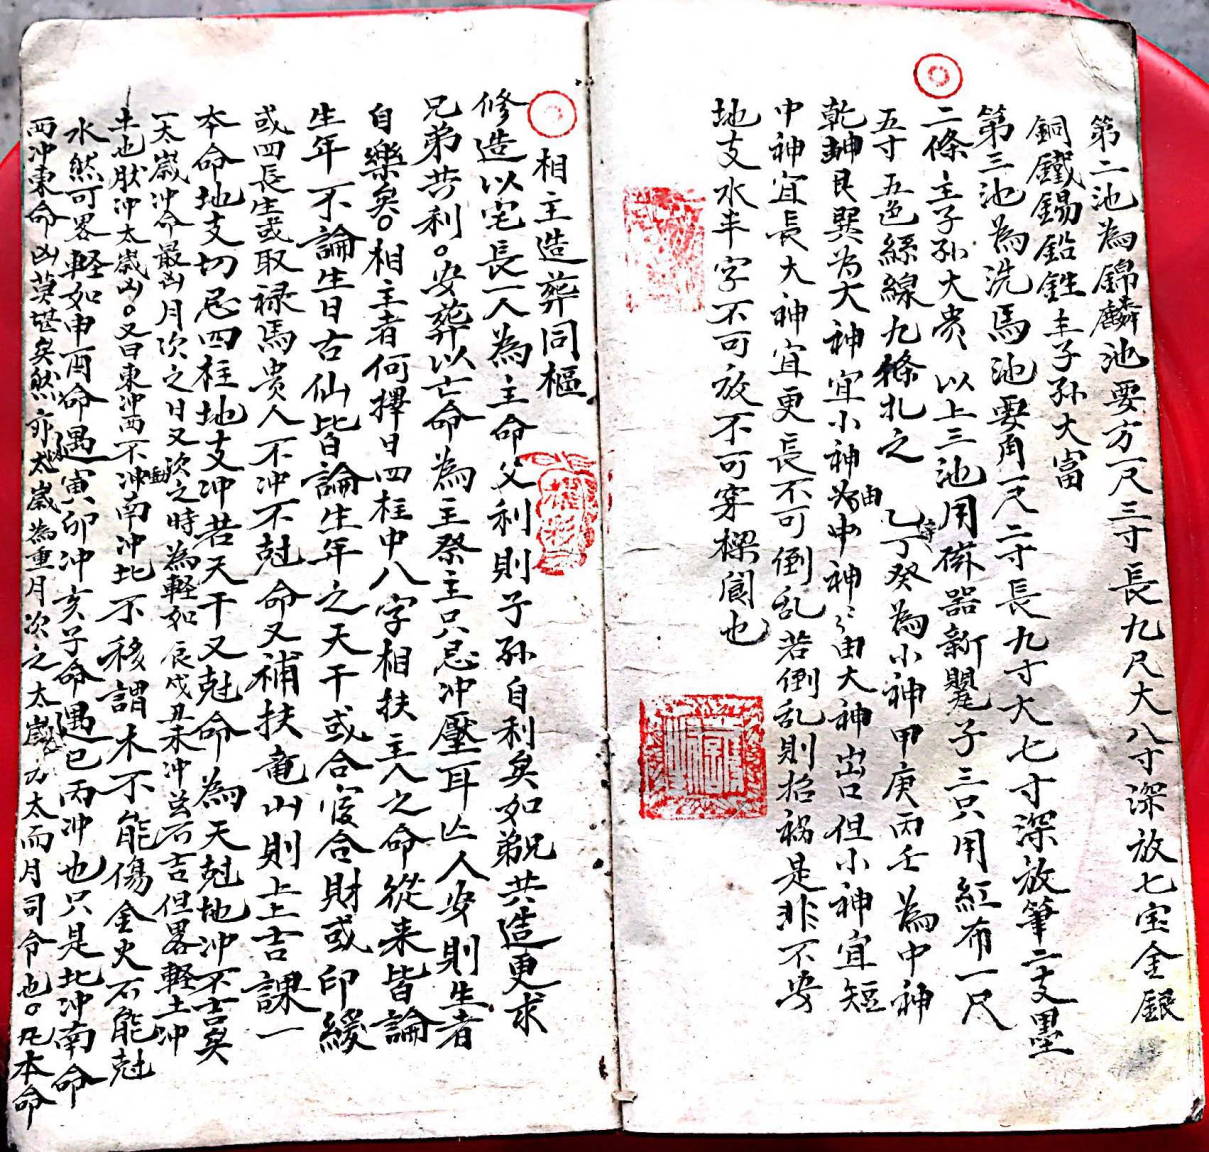 第二池為錦麟池要方一尺三寸長九尺大八寸深放七宝金銀
銅鐵錫鉛鉎主子孫大富
第三池為洗馬池要角一尺二寸長九寸大七寸深放筆二支墨
二條主子孫大贵以上三池用磁器新甖子三只用紅布一尺
五寸五色絲線九條扎之 乙丁癸為小神甲庚丙壬為中神
乾坤艮巽为大神宜小神为由中神々由大神出口但小神宜短
中神宜長大神宜更長不可倒乱若倒乱則招祸是非不安
地支水半字不可放不可穿樑閬也
相主造葬同樞
修造以宅長一人為主命父利則子孙自利矣如弟兄共造更求
兄弟共利。安葬以亡命為主祭主只忌冲壓耳亡人安則生者
自樂矣。相主者何擇日四柱中八字相扶主人之命從来皆論
生年不論生日古仙皆論生年之天干或合官合財或印綬
或四長生或取禄馬贵人不冲不尅命又補扶竜山則上上吉課一
本命地支切忌四柱地支冲若天干又尅命為天尅地冲不吉矣
一太歲冲命最凶月次之日又次之時為輕如辰戌丑未冲為不吉但畧輕土冲
土也肤冲太歲凶。又曰東冲西不冲動南冲北不移謂木不能傷金火不能尅
水然可畧輕如申酉命遇寅卯冲亥子命遇巳丙冲也只是北冲南命
西冲東命凶莫堪矣然亦太歲為重月次之太歲九太而月司令也。凡本命